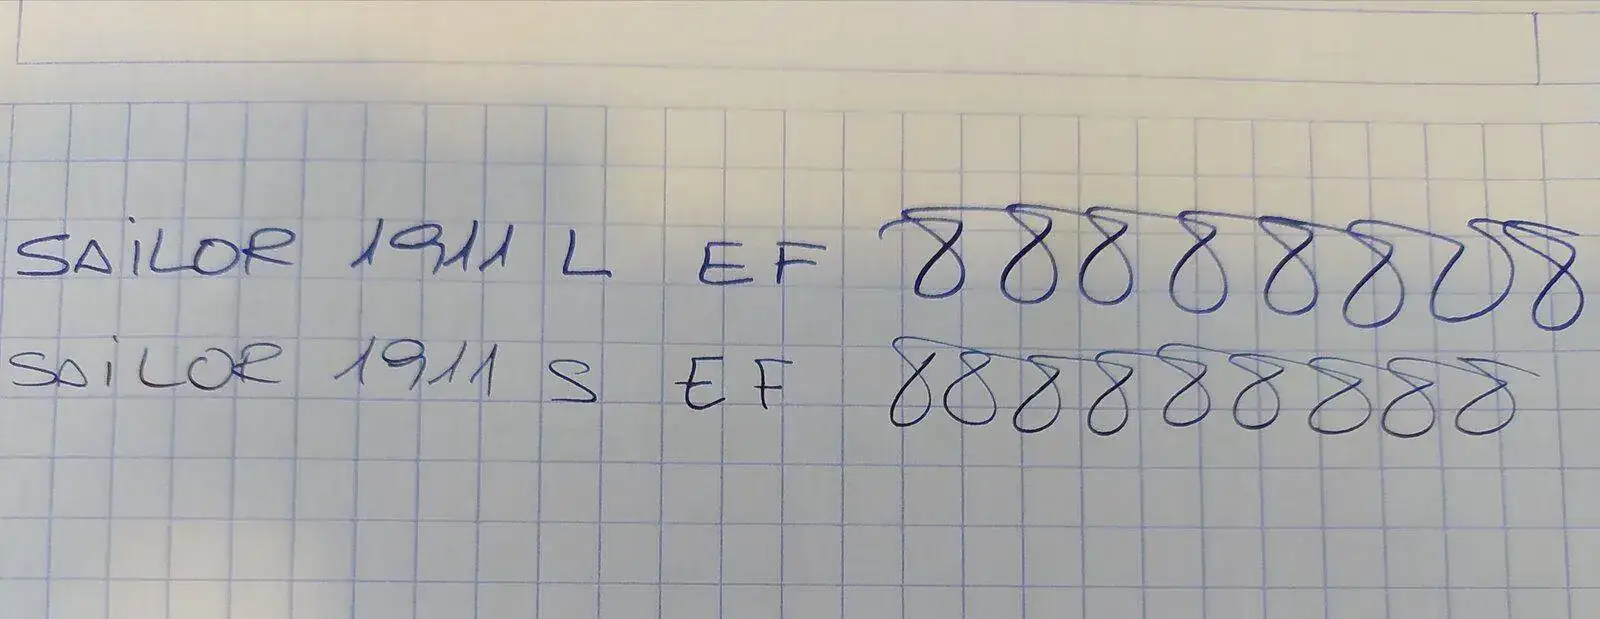 SAiLOR 1911 L EF 88888888
SAiLOR 1911 S EF 888888888